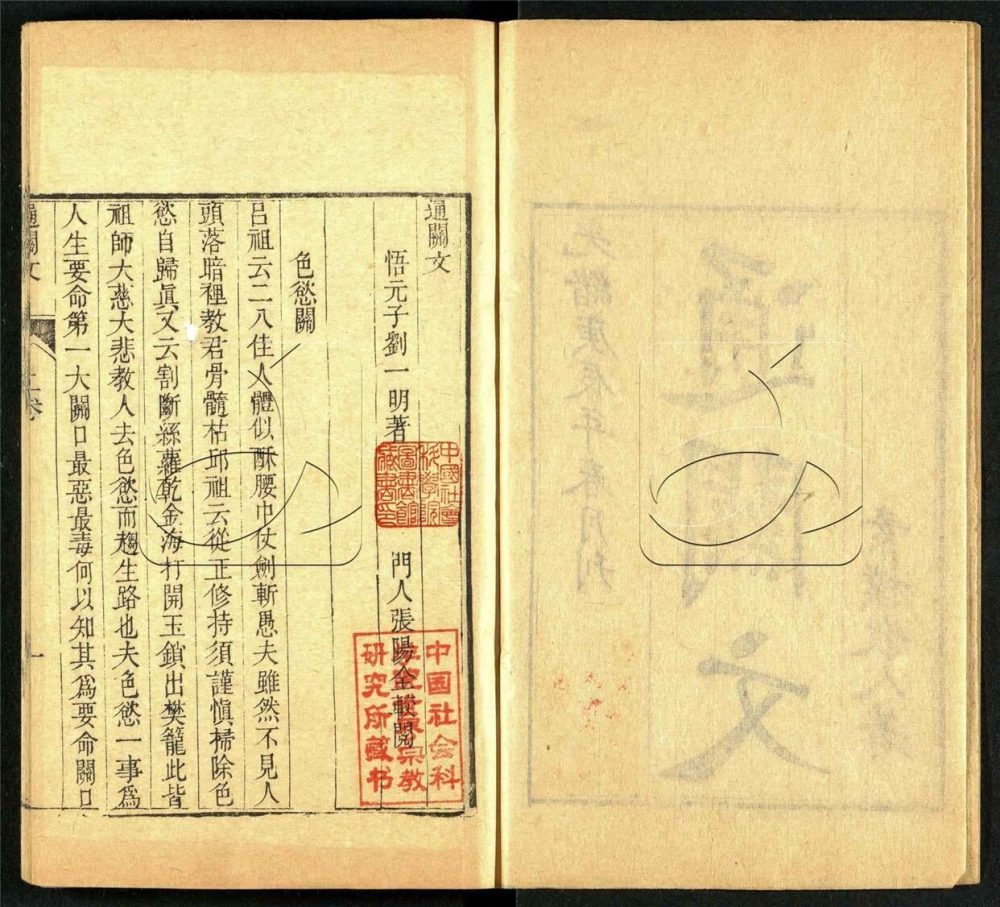 通關文
光緒庚辰年春月刊
通關文
悟元子劉一明著　門人張陽全較閱
中國社會
科學院
圖書館
藏書印
中国社会科
学院世界宗教
研究所藏书
色慾關
呂祖云二八佳人體似酥腰巾仗劍斬愚夫雖然不見人
頭落暗裡教君骨髓枯邱祖云從正修持須謹慎掃除色
慾自歸眞又云割斷絲蘿乾金海打開玉鎖出樊籠此皆
祖師大慈大悲教人去色慾而趨生路也夫色慾一事爲
人生要命第一大關口最惡最毒何以知其爲要命關口
通關文　上卷　一